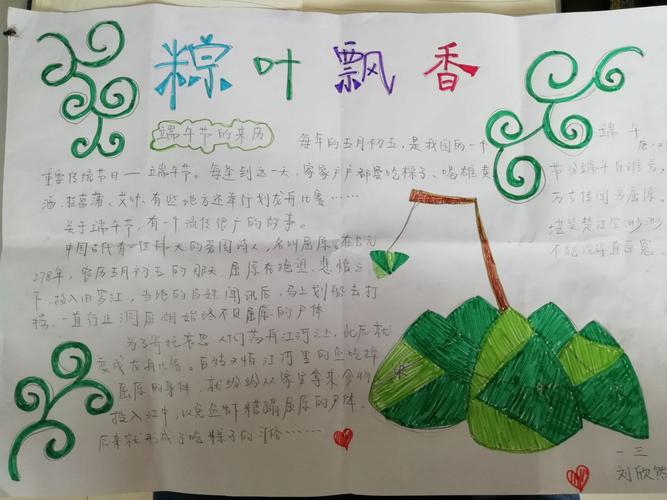 粽叶飘香
端午节的来历
每年的五月初五，是我国的一个
重要传统节日——端午节。每逢到这一天，家家户户都要吃粽子、喝雄黄
酒、挂菖蒲、艾叶，有些地方还举行划龙舟比赛……
关于端午节，有一个流传很广的故事。
中国古代有一位伟大的爱国诗人，名叫屈原。在公元
278年，农历五月初五的那天，屈原在绝望、悲愤之
下，投入汨罗江，当地的百姓闻讯后，马上划船去打
捞，一直行止洞庭湖始终不见屈原的尸体
为了寄托哀思 人们荡舟江河之上，此后就
变成龙舟比赛。百姓又怕江河里的鱼吃掉
屈原的身体，就纷纷从家里拿来食物
投入江中，以免鱼虾糟蹋屈原的尸体，
后来就形成了吃粽子的习俗……
端午
唐
节分端午自谁言，
万古传闻为屈原。
堪笑楚江空渺渺
不能洗得直臣冤。
一三
刘欣然